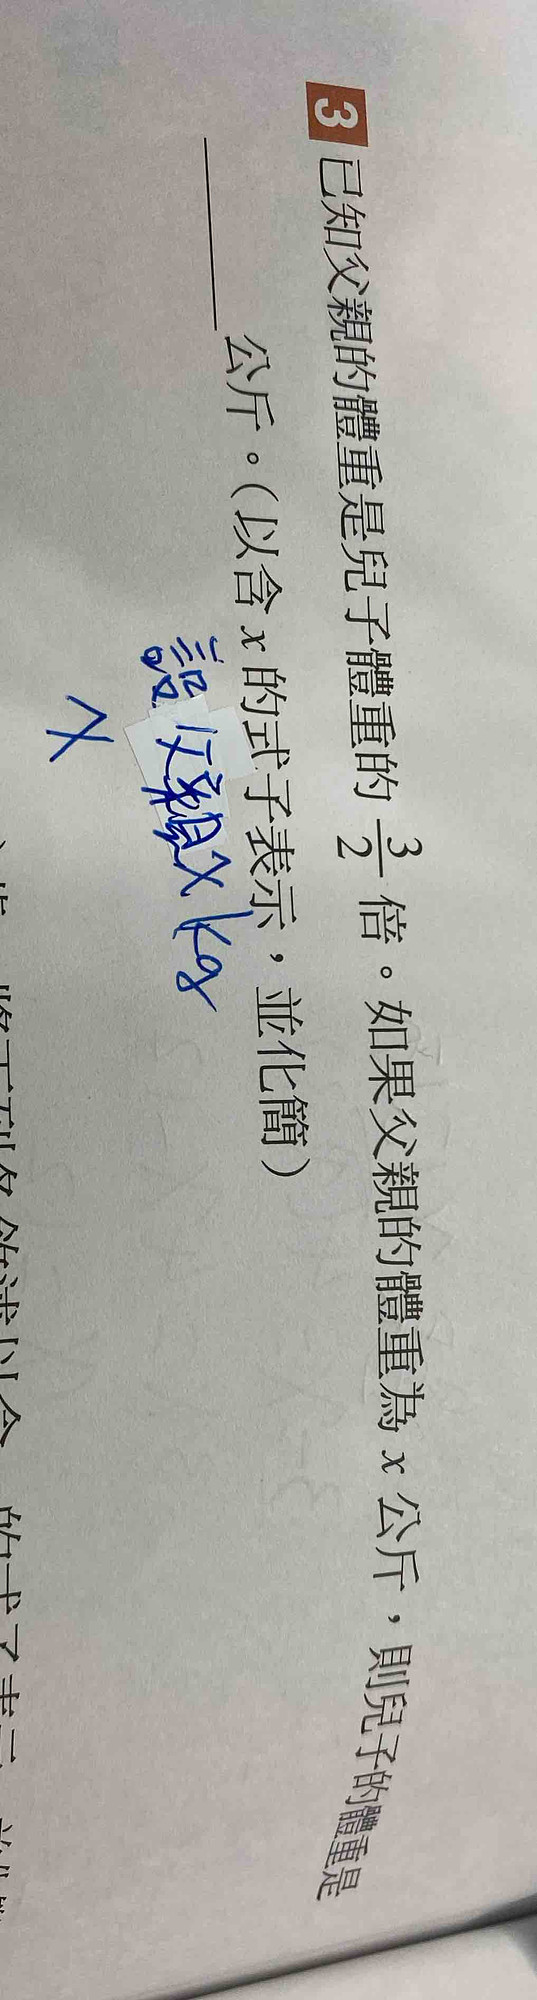 3 已知父親的體重是兒子體重的 3/2 倍。如果父親的體重為 x 公斤，則兒子的體重是
＿＿＿＿ 公斤。（以含 x 的式子表示，並化簡）
設父親x kg
x